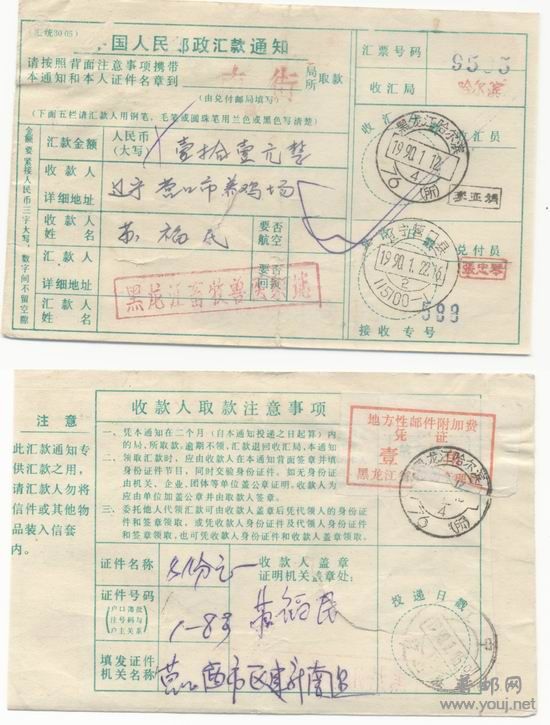 (汇统3005)
中国人民邮政汇款通知
请按照背面注意事项携带
本通知和本人证件名章到 局所取款
(由兑付邮局填写)
(下面五栏请汇款人用钢笔、毛笔或圆珠笔用兰色或黑色写清楚)
金额要紧接人民币三字大写,数字间不留空隙
汇款金额 人民币(大写) 壹拾壹元整
收款人详细地址 辽宁营口市养鸡场
收款人姓名 民 要否航空
汇款人详细地址 要否回
黑龙江畜牧兽医
汇款人姓名
汇票号码
收汇局 哈尔滨
收汇
收汇员
黑龙江哈尔滨
1990.1.12
4
76(所)
李亚娟
兑付员
县
1990.1.22.16
2
115100
张忠琴
588
接收专号
注意
此汇款通知专
供汇款之用,
请汇款人勿将
信件或其他物
品装入信套
内。
收款人取款注意事项
一、凭本通知在二个月(自本通知投递之日起算)内
的局、所取款,逾期不领,汇款退回收汇局。本通知
二、领取汇款时,应由收款人在本通知背面签章并填
身份证件节目,同时交验身份证件。如无身份证
由机关、企业、团体等单位盖公章证明。收款人为
应由单位加盖公章并由取款人签章。
三、委托他人代领汇款可由收款人盖章后凭代领人的身份证
件和签章领取,或凭收款人身份证件及代领人身份证件
和签章领取,也可凭收款人身份证件和收款人盖章领取。
地方性邮件附加费
凭证
壹
黑龙江
黑龙江哈尔滨
4
76(所)
证件名称 身份证
收款人盖章
证明机关盖章处:
证件号码
(户口簿批注号码与户主关系)
1-83
民
投递日戳
填发证件机关名称 市区建新南
邮网
www.youj.net